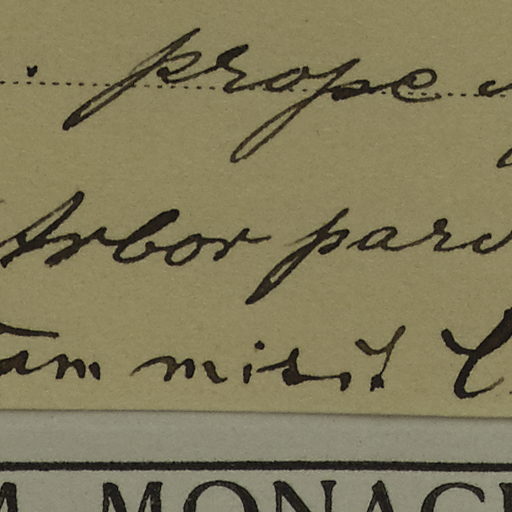 . prope
Arbor parv
am misit C
M MONAC